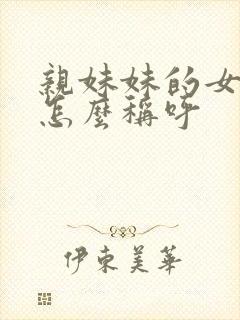 親妹妹的女
怎麼稱呼
伊東美華